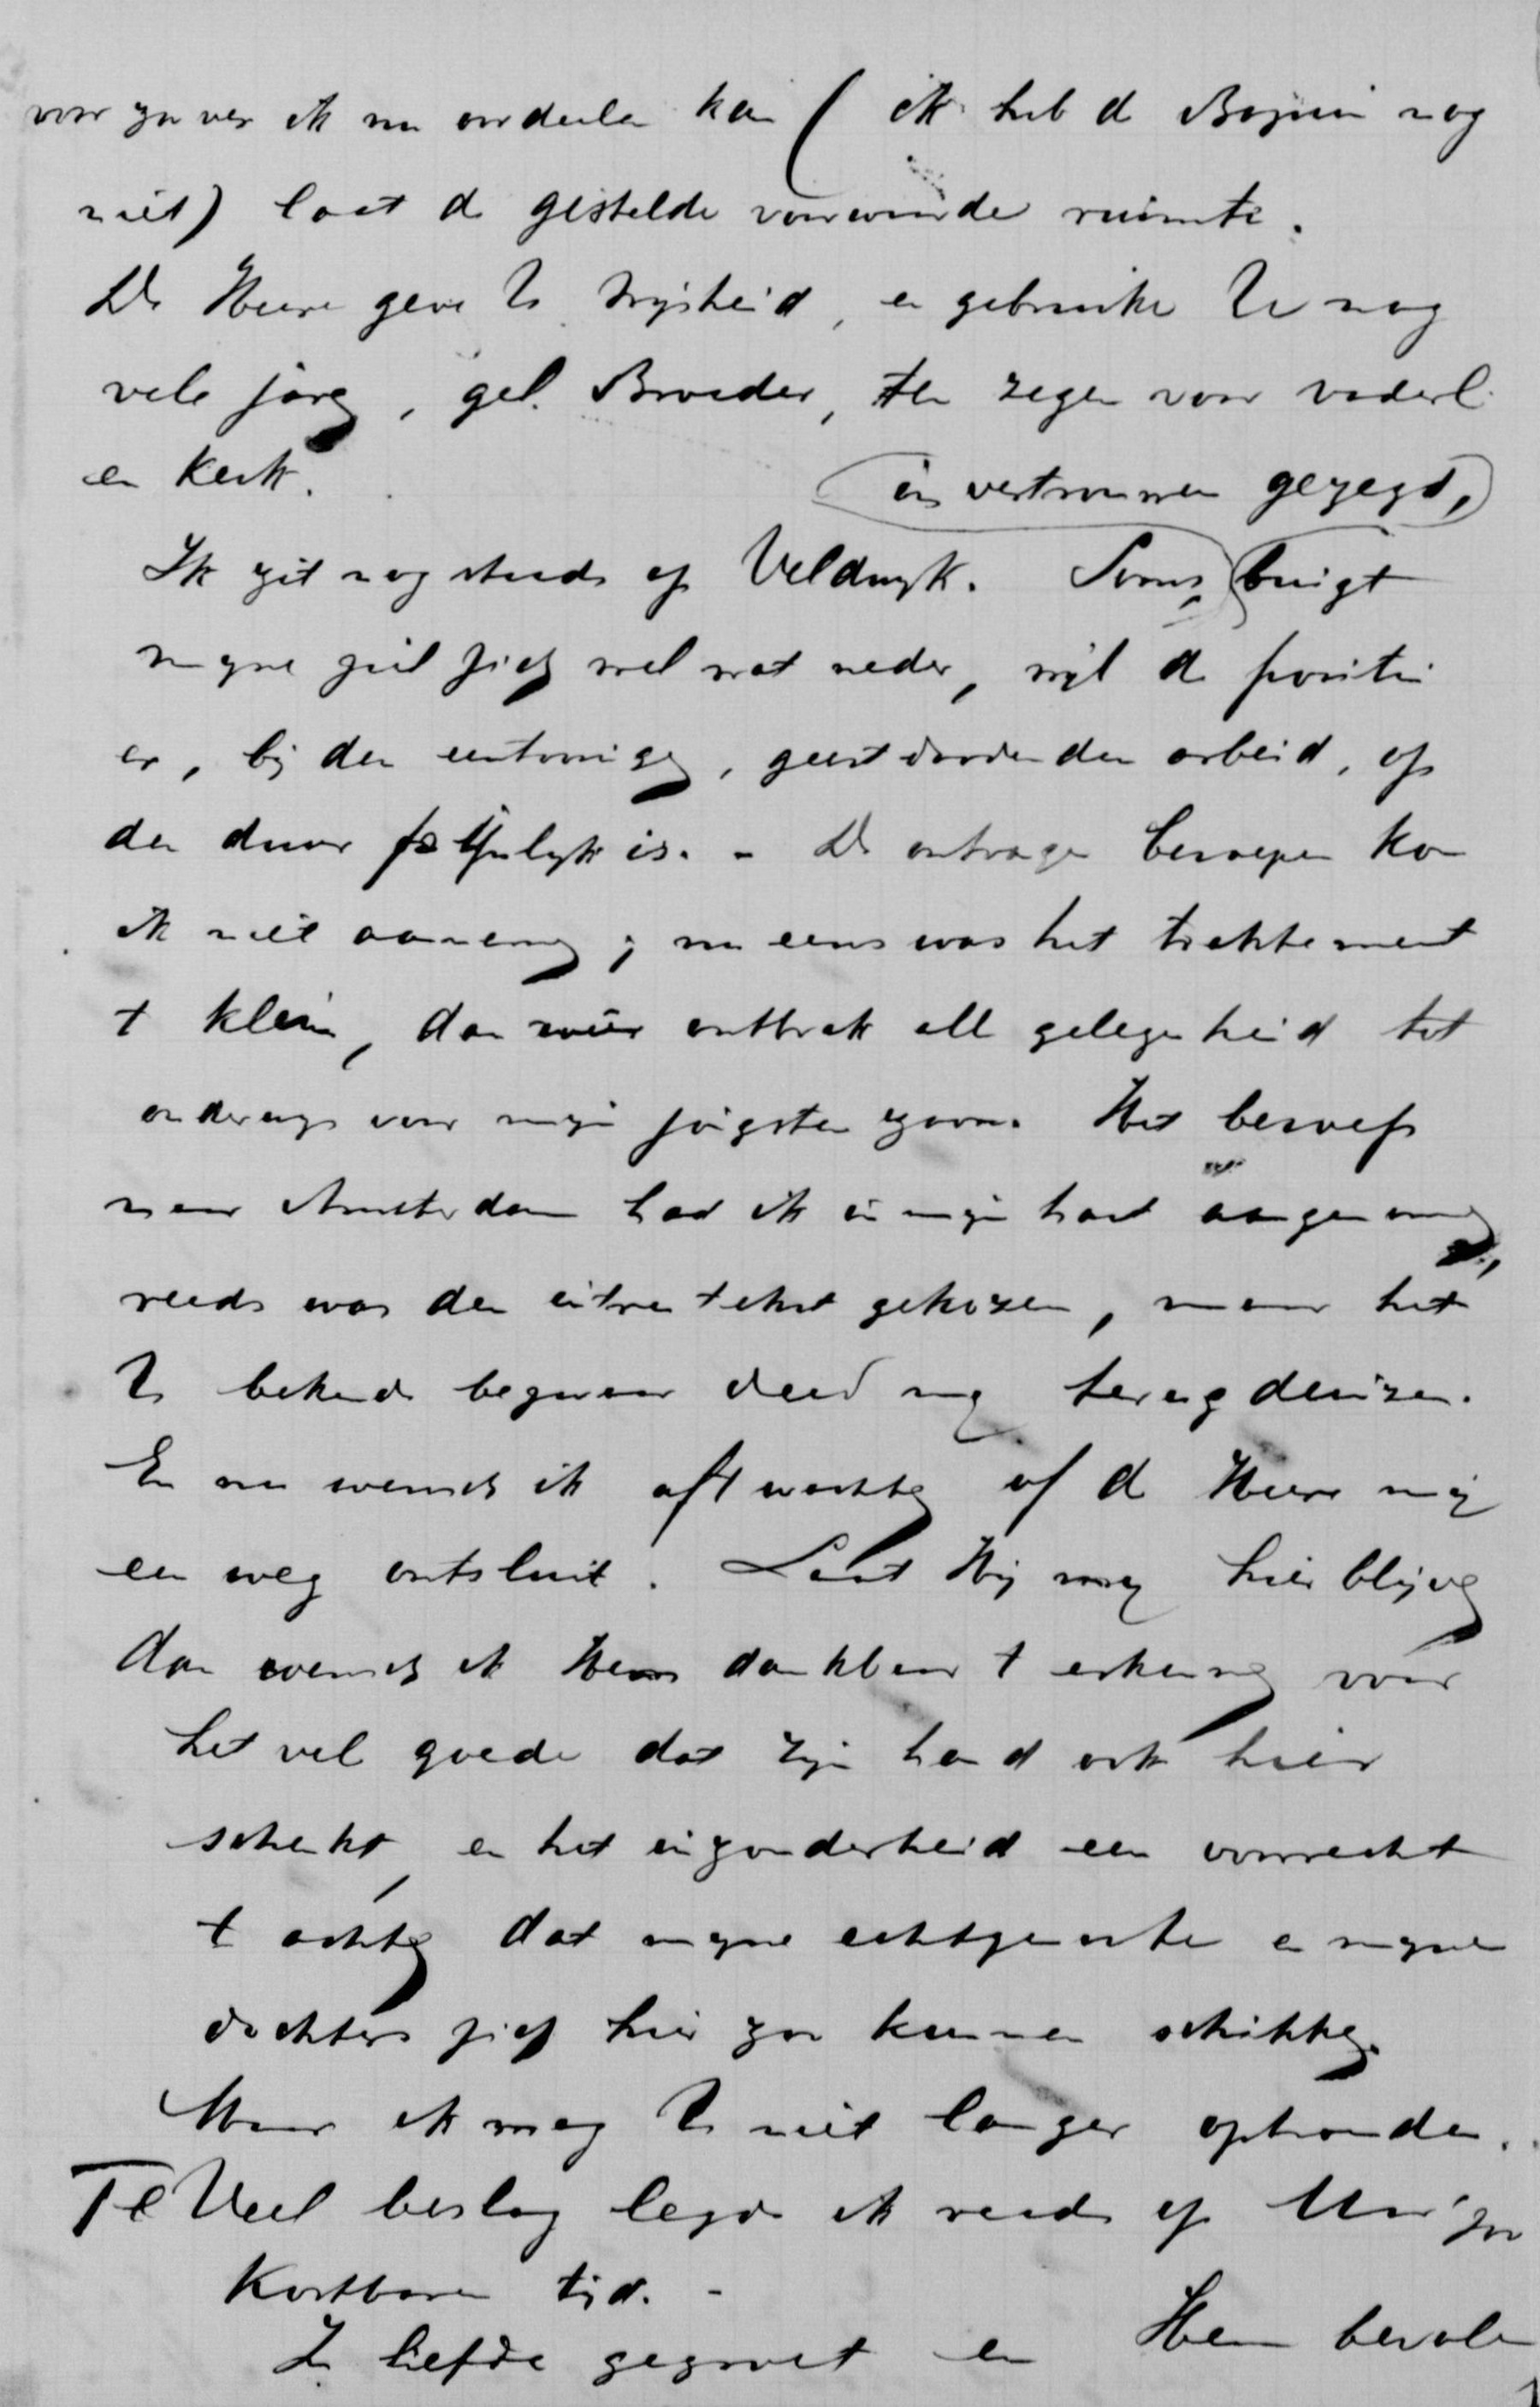 voor zoo ver ik nu oordeelen kan (ik heb de Bazuin nog
niet) laat de gestelde voorwaarde ruimte.
De Heere geve U wijsheid, en gebruike U nog
vele jaren, gel. Broeder, ten zegen voor vaderl.
en Kerk.
(in vertrouwen gezegd,)
Ik zit nog steeds op Veldwyk. Soms buigt
myne ziel zich wel wat neder, wyl de positie
er, bij den eentonigen, geestdoodenden arbeid, op
den duur pijnlyk is. - De ontvangen beroepen kon
ik niet aannemen; nu eens was het traktement
te klein, dan weer ontbrak alle gelegenheid tot
onderwys voor mijn jongsten zoon. Het beroep
naar Amsterdam had ik in mijn hart aangenomen,
reeds was den intree tekst gekozen, maar het
U bekende bezwaar deed my terugdeinzen.
En nu wensch ik af te wachten of de Heere mij
een weg ontsluit. Laat Hij my hier blijven
dan wensch ik Hem dankbaar te erkennen voor
het vele goede dat Zijn hand ook hier
schenkt, en het inzonderheid een voorrecht
te achten dat myne echtgenoote en myne
dochters zich hier zoo kunnen schikken.
Maar ik mag U niet langer ophouden.
Te Veel beslag legde ik reeds op Uw zoo
kostbaren tijd. -
In liefde gegroet en Hem bevolen